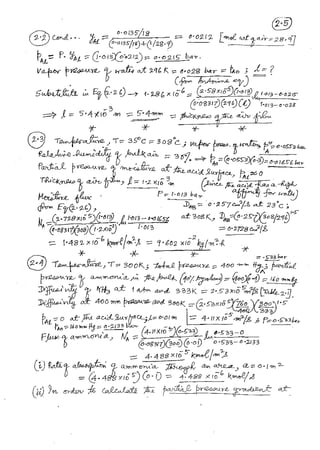 2.5
(2.2) Cond... y_Al = (0.0135/18) / ((0.0135/18)+(1/28.9)) = 0.0212 [mol. wt of air = 28.9]
p_Al = P. y_Al = (1.015)(0.0212) = 0.0215 bar.
Vapor pressure of water at 296 K = 0.028 bar = ; l = ?
(from Antoine eq.)
Substitute in Eq (2.26) → 1.286 × 10^-6 = (2.58×10^-5)(1.013) / (0.08317)(296)(l) 1.013-0.0215 / 1.013-0.028
⇒ l = 5.4×10^-3 m = 5.4 mm = thickness of the air film
* * *
(2.3) Temperature, T = 35°C = 308 K, vapor press. of water = 0.0553 bar
Relative humidity of bulk air = 30% ⇒ = (0.0553)(0.3) = 0.01656 bar
Partial pressure of moisture at the acid surface, = 0
Thickness of air film, l = 1.2×10^-3 m (Since the acid has a high affinity for water)
Moisture flux P = 1.013 bar
from Eq (2.26), = 0.257 cm²/s at 23°C;
at 308 K,
= 0.2778 cm²/s
= 1.482 × 10^-6 kmol/m².s = 9.602 × 10^-2 kg/m².h
* * *
(2.4) Temperature, T = 300 K; total pressure = 400 mm Hg; partial = .533 bar
pressure of ammonia in the bulk (40% by volume) = (400)(0.4) = 160 mm Hg
Diffusivity of NH₃ at 1 atm and 333K = 2.53×10^-5 m²/s [Table 2.2].
Diffusivity at 400 mm pressure and 300K = (2.53×10^-5)(760/400)(300/333)^1.75
= 0 at the acid surface, l = 0.01 m = 4.11×10^-5 m²/s & P = 0.533 bar
= 160 mm Hg = 0.2133 bar
Flux of ammonia, N_A = (4.11×10^-5)(0.533) / (0.08317)(300)(0.01) ln 0.533-0 / 0.533-0.2133
= 4.488 × 10^-5 kmol/m².s
(i) Rate of absorption of ammonia through an area, a = 0.1 m²
= (4.488×10^-5)(0.1) = 4.488 × 10^-6 kmol/s
(ii) In order to calculate the partial pressure gradient at